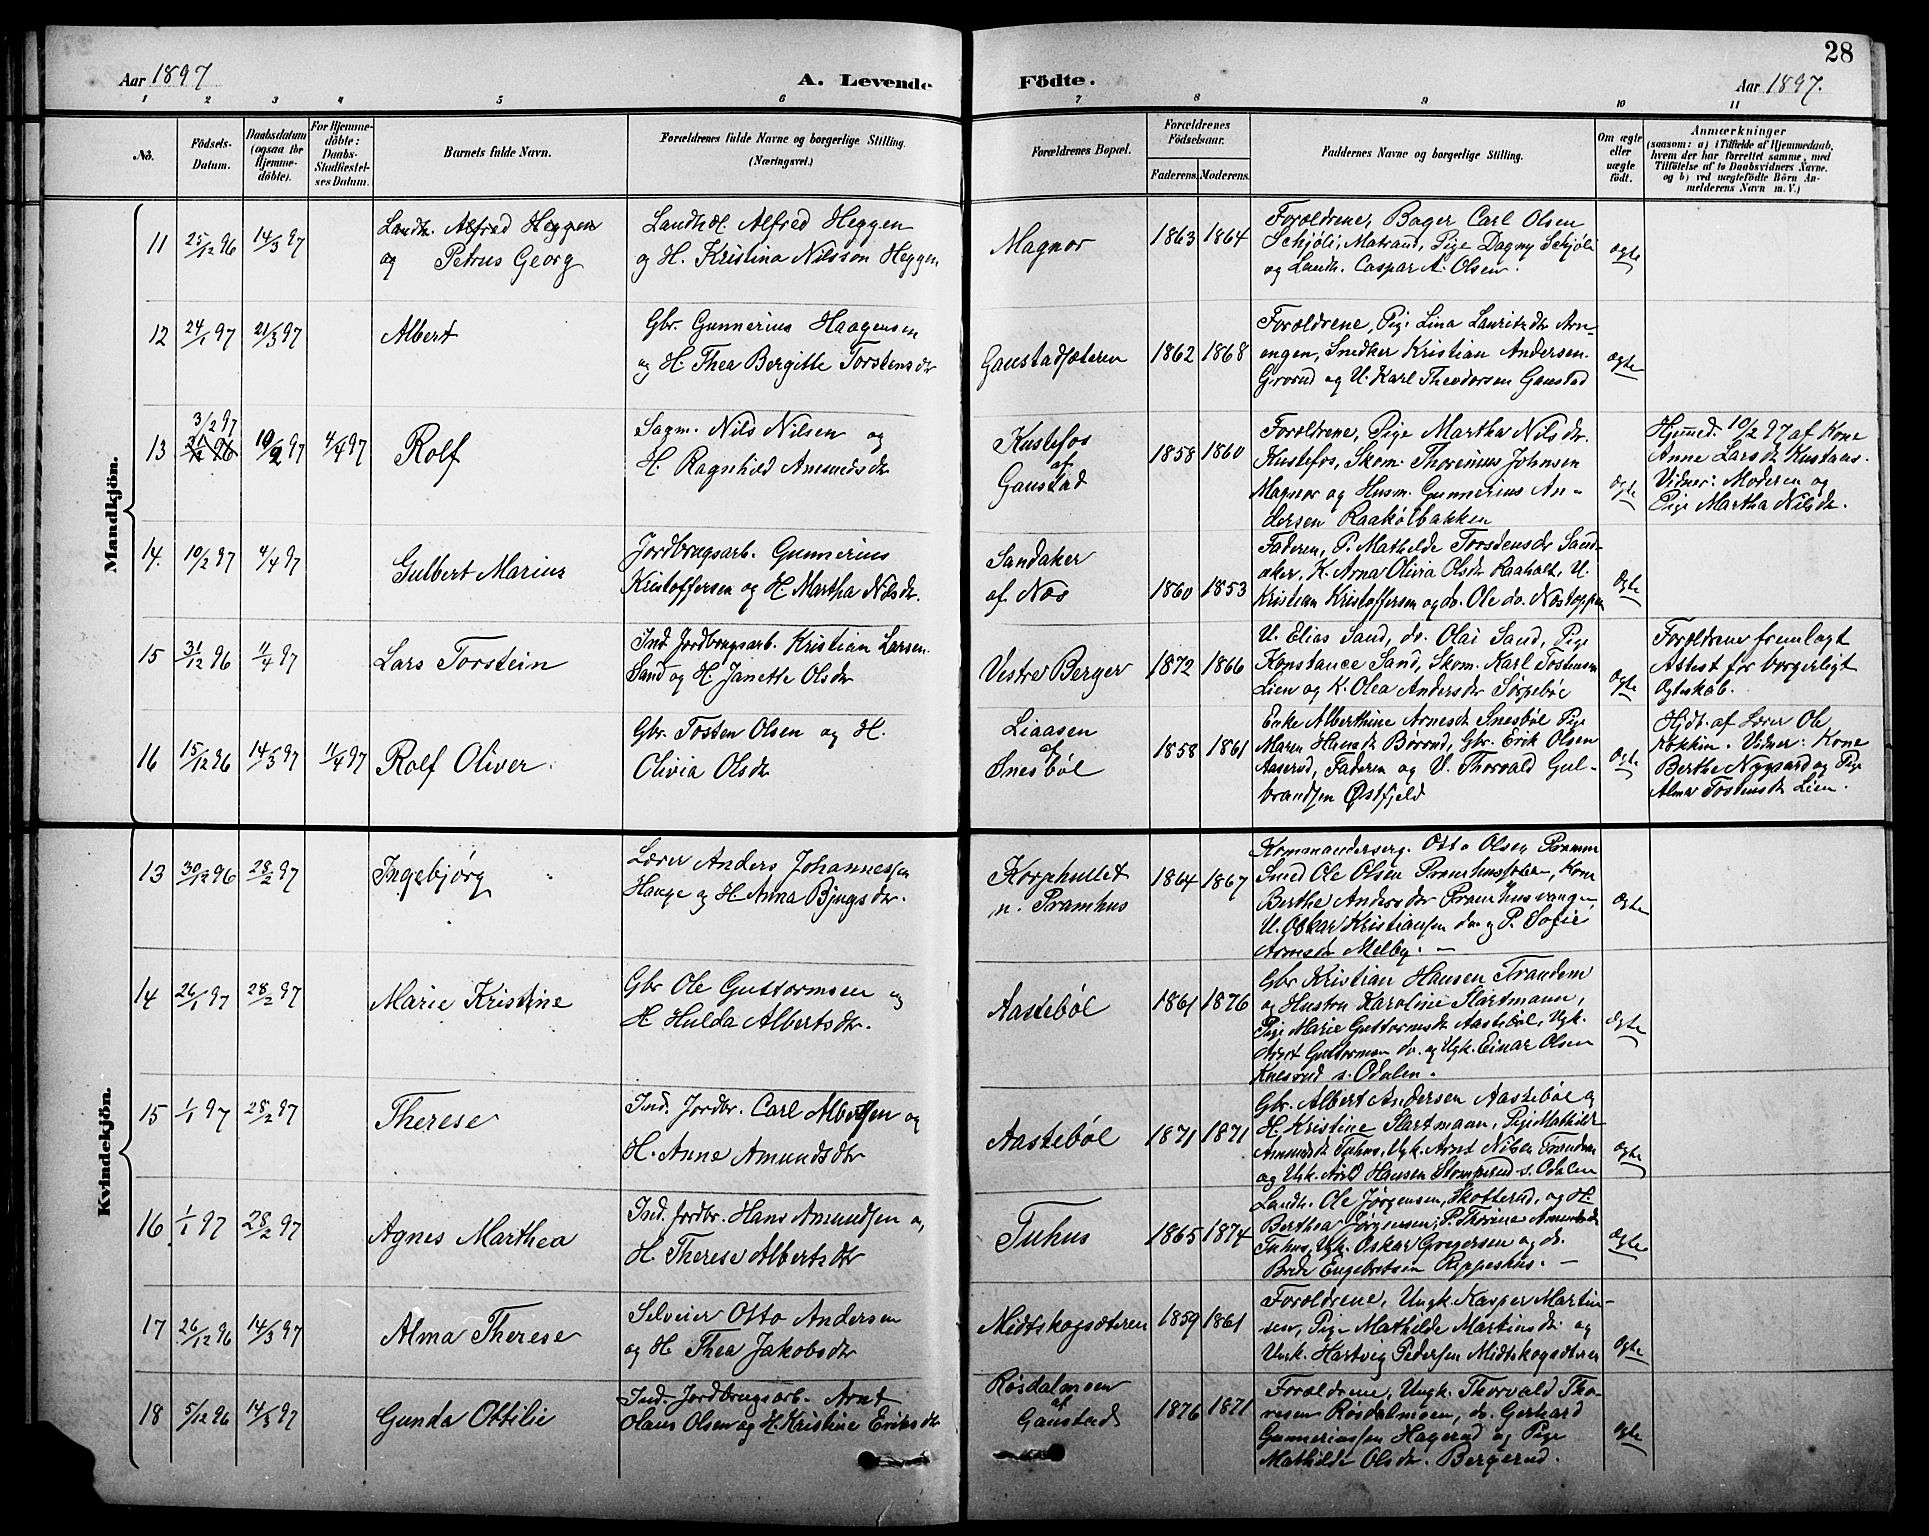 28
Aar 1897
A. Levende
Födte.
Aar 1897.
1 2 3 4 5 6 7 8 9 10 11
No.
Födsels-
Datum.
Daabsdatum
(ogsaa for
Hjemme-
döbte).
For Hjemme-
döbte:
Daabs-
Stadfæstel-
ses Datum.
Barnets fulde Navn.
Forældrenes fulde Navne og borgerlige Stilling.
(Næringsvei.)
Forældrenes Bopæl.
Forældrenes
Födselsaar.
Faderens. Moderens.
Faddernes Navne og borgerlige Stilling.
Om ægte
eller
uægte
födt.
Anmærkninger
(saasom: a) i Tilfælde af Hjemmedaab,
hvem der har forrettet samme, med
Tilföielse af to Daabsvidners Navne.
og b) ved uægtefödte Börn An-
melderens Navn m. V.)
Mandkjön.
11 25/12 96 14/3 97
Landh. Alfred Heggen
og Petrus Georg
Landh. Alfred Heggen
og H. Kristina Nilsson Heggen
Magnor
1863 1864
Forældrene, Bager Carl Olsen
Schjöli, Matrand, Pige Dagny Schjöli
og Landh. Caspar A. Olsen.
ægte
12 24/1 97 21/3 97
Albert
Gbr. Gunnerius Haagensen
og H. Thea Bergitte Torstensdtr
Gaustadsæteren
1862 1868
Forældrene, Pige Lina Lauritzdtr Arn-
engen, Snedker Kristian Andersen
Grorud og U. Karl Theodorsen Gaustad
ægte
3/2 97
13 10/2 97 4/4 97
Rolf
Sagm. Nils Nilsen og
H. Ragnhild Amundsdtr
Kustefos
af
Gaustad
1858 1860
Forældrene, Pige Martha Nilsdtr.
Kustefos, Skom. Thorenius Johnsen
Magnor og Husm. Gunnerius An-
dersen Raakölbakken
ægte
Hjemmed. 10/2 97 af Kone
Anne Larsdtr Kustaas.
Vidner: Moderen og
Pige Martha Nilsdtr.
14. 10/2 97 4/4 97
Gulbert Marius
Jordbrugsarb. Gunnerius
Kristoffersen og H. Martha Nilsdtr.
Sandaker
af Nos
1860 1853
Faderen, P. Mathilde Torstensdtr Sand-
aker, K. Arna Olivia Olsdtr Raaholt, U.
Kristian Kristoffersen og do. Ole do. Nostoppen
ægte
15 31/12 96 11/4 97
Lars Torstein
Ind. Jordbrugsarb. Kristian Larsen
Sand og H. Janette Olsdtr
Vestre Berger
1872 1866
U. Elias Sand, do. Olai Sand, Pige
Konstance Sand, Skom. Karl Tostensen
Lien og K. Olea Andersdtr Sörpeböe
ægte
Forældrene fremlagt
Attest for borgerligt
Ægteskab.
16 15/12 96 14/3 97 11/4 97
Rolf Oliver
Gbr. Tosten Olsen og H.
Olivia Olsdtr
Liaasen
af
Snesböl
1858 1861
Enke Alberthine Arnesdtr Snesböl Pige
Maren Hansdtr Börud, Gbr. Erik Olsen
Aaserud, Faderen og U. Thorvald Gul-
brandsen Østfjeld
ægte
Hjdt. af Lærer Ole
Kokkin. Vidner: Kone
Berthe Nygaard og Pige
Alma Tostensdtr Lien.
Kvindekjön.
13 30/12 96 28/2 97
Ingebjörg
Lærer Anders Johannessen
Hauge og H. Anna Bjugsdtr.
Korphullet
n. Pramhus
1864 1867
Kommanderserg. Otto Olsen Pramm
Smed Ole Olsen Pramhussæter, Kone
Berthe Andersdtr Pramhusvangen
U. Oskar Kristiansen do. og P. Sofie
Arnesdtr Melby.
ægte
14 26/1 97 28/2 97
Marie Kristine
Gbr Ole Guttormsen og
H. Hulda Albertsdtr.
Aasteböl
1861 1876
Gbr Kristian Hansen Trandem
og Hustru Karoline Slartmann,
Pige Marie Guttormsdtr Aasteböl, Ugk.
Arndt Guttormsen do. og Ugk. Einar Olsen
Knesrud s. Odalen.
ægte
15 1/1 97 28/2 97
Therese
Ind. Jordbr. Carl Albertsen og
H. Anne Amundsdtr
Aasteböl
1871 1871
Gbr. Albert Andersen Aasteböl og
H. Kristine Slartmann, Pige Mathilde
Amundsdtr Tuhus, Ugk. Arnt Nilsen Trandem
og Ugk. Arnt Hansen Stomperud s. Odalen
ægte
16 1/1 97 28/2 97
Agnes Marthea
Ind. Jordbr. Hans Amundsen og
H. Therese Albertsdtr
Tuhus
1865 1874
Landh. Ole Jörgensen, Skotterud, og H.
Berthea Jörgensen, P. Thorine Amundsdtr
Tuhus, Ugk. Oskar Gregersen og do.
Brede Engebretsen Rippeshus.
ægte
17 26/12 96 14/3 97
Alma Therese
Selveier Otto Andersen
og H Thea Jakobsdtr
Midtskogsæteren
1859 1861
Forældrene, Ungk. Kasper Martin-
sen, Pige Mathilde Martinsdtr og
Ungk. Hartvig Pedersen Midtskogsæteren
ægte
18 5/12 96 14/3 97
Gunda Ottilie
Ind. Jordbrugsarb. Arnt
Olaus Olsen og H. Kristine Eriksdtr
Rösdalmoen
af
Gaustad
1876 1871
Forældrene, Ungk. Thorvald Tho-
resen Rösdalmoen, do. Gerhard
Gunneriussen Hagerud og Pige
Mathilde Olsdtr. Bergerud.
ægte